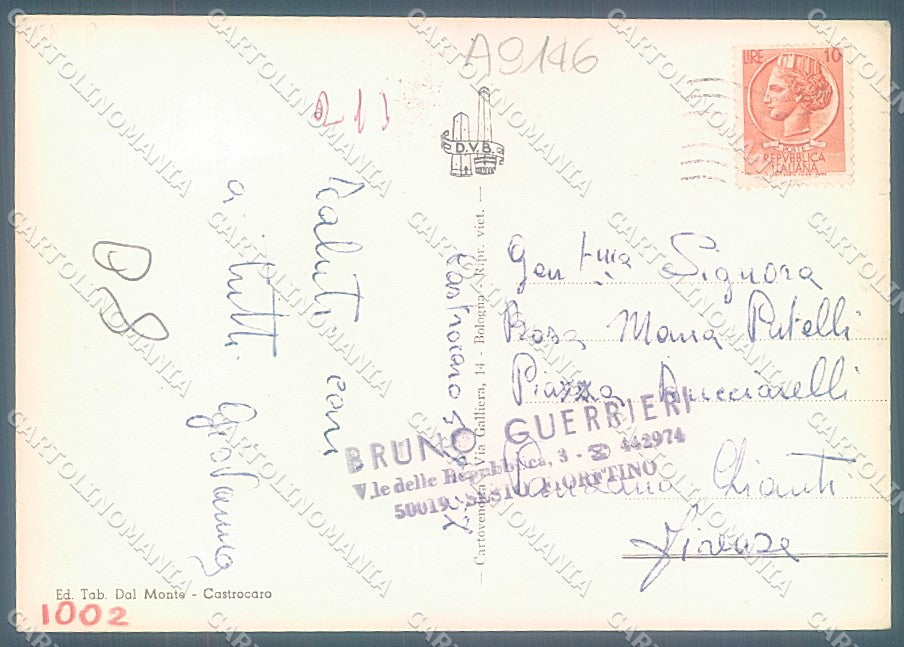 A9146
LIRE 10
POSTE
REPVBBLICA
ITALIANA
D.V.B.
Saluti cari
a tutti
Giovanna
Castrocaro
Gent.ma Signora
Rosa Maria Putelli
Piazza Bucciarelli
Panzano Chianti
Firenze
BRUNO GUERRIERI
V.le delle Repubblica, 3 - ☎ 442974
50019 SESTO FIORENTINO
Cartovendita Via Galliera, 14 - Bologna - Ripr. viet.
Ed. Tab. Dal Monte - Castrocaro
1002
CARTOLINOMANIA